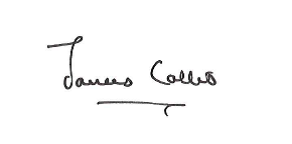 James Collis